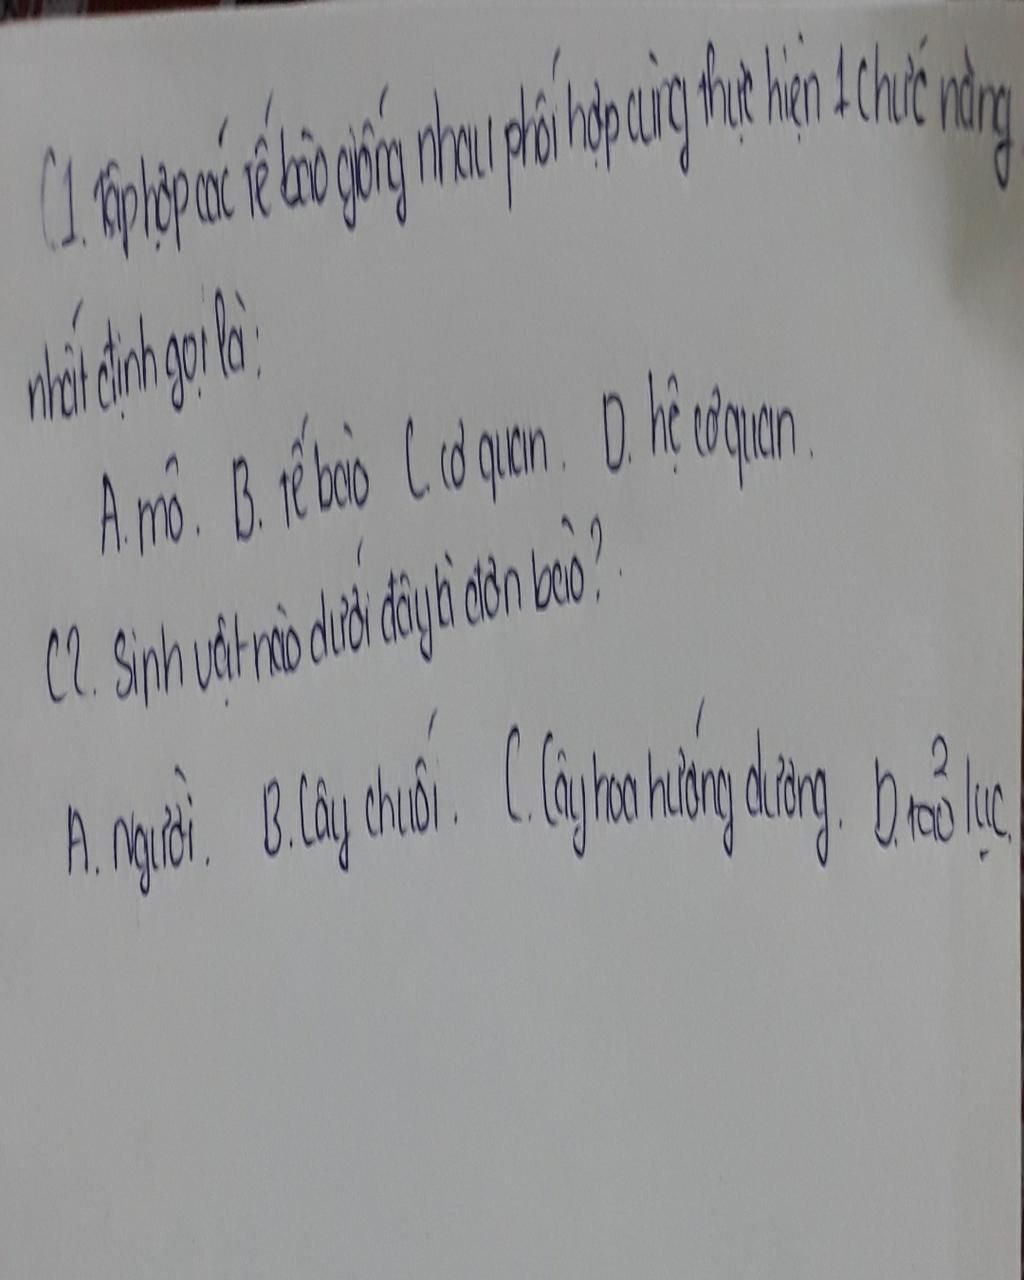 C1. Tập hợp các tế bào giống nhau phối hợp cùng thực hiện 1 chức năng
nhất định gọi là:
A. mô. B. tế bào C. cơ quan. D. hệ cơ quan.
C2. Sinh vật nào dưới đây là đơn bào?.
A. Người. B. Cây chuối. C. Cây hoa hướng dương. D. tảo lục.